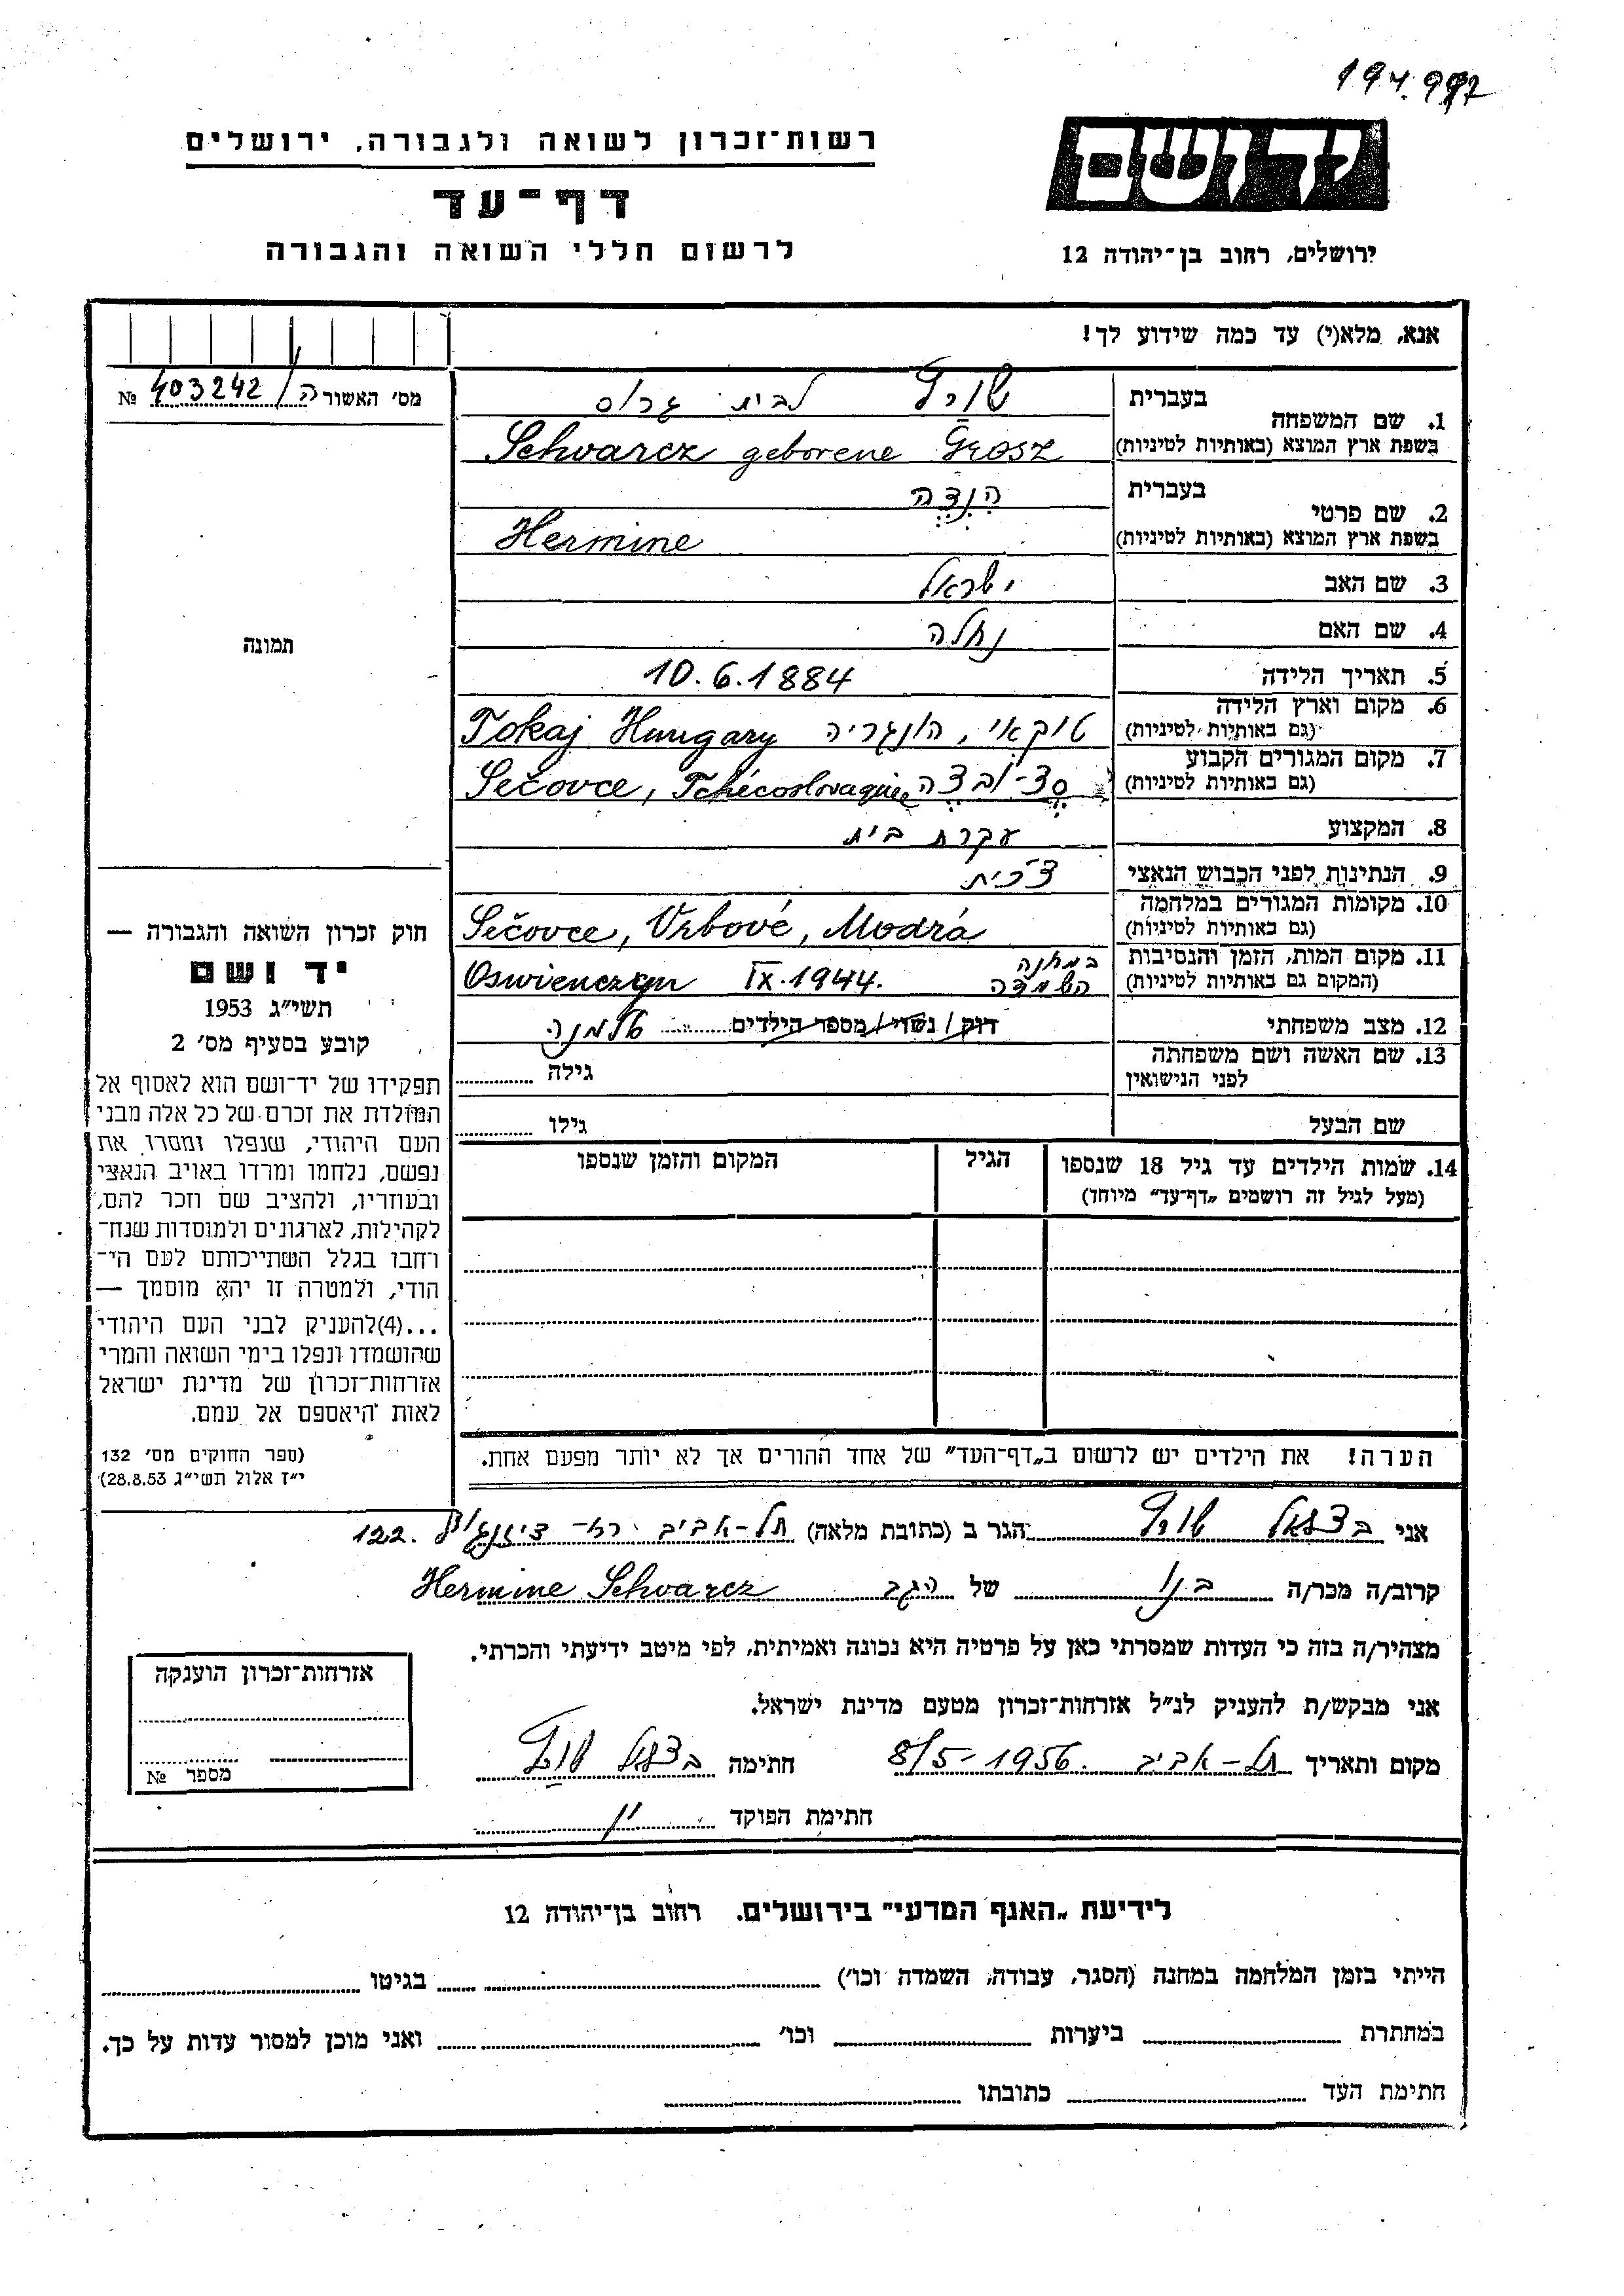 194.997
ידושם
רשות־זכרון לשואה ולגבורה, ירושלים
דף־עד
לרשום חללי השואה והגבורה
ירושלים, רחוב בן־יהודה 12
אנא, מלא(י) עד כמה שידוע לך!
מס׳ האשורה/ 403242 №
תמונה
1. שם המשפחה
בעברית לבית גרוס
בשפת ארץ המוצא (באותיות לטיניות) Schwarcz geborene Grosz
2. שם פרטי
בעברית הנצה
בשפת ארץ המוצא (באותיות לטיניות) Hermine
3. שם האב ישראל
4. שם האם נחלה
5. תאריך הלידה 10.6.1884
6. מקום וארץ הלידה
(גם באותיות לטיניות) טוקאי, הונגריה Tokaj Hungary
7. מקום המגורים הקבוע
(גם באותיות לטיניות) סצ־ובצה Sečovce, Tchécoslovaquie
8. המקצוע עקרת בית
9. הנתינות לפני הכבוש הנאצי צ׳כית
10. מקומות המגורים במלחמה
(גם באותיות לטיניות) Sečovce, Vrbové, Modrá
11. מקום המות, הזמן והנסיבות
(המקום גם באותיות לטיניות) במחנה השמדה Oswienczym IX.1944.
12. מצב משפחתי רווק/ נשוי/ מספר הילדים אלמנה
13. שם האשה ושם משפחתה
לפני הנישואין גילה
שם הבעל גילו
14. שמות הילדים עד גיל 18 שנספו
(מעל לגיל זה רושמים „דף־עד״ מיוחד)
הגיל
המקום והזמן שנספו
הערה! את הילדים יש לרשום ב„דף־העד״ של אחד ההורים אך לא יותר מפעם אחת.
חוק זכרון השואה והגבורה —
יד ושם
תשי״ג 1953
קובע בסעיף מס׳ 2
תפקידו של יד־ושם הוא לאסוף אל
המולדת את זכרם של כל אלה מבני
העם היהודי, שנפלו ומסרו את
נפשם, נלחמו ומרדו באויב הנאצי
ובעוזריו, ולהציב שם וזכר להם,
לקהילות, לארגונים ולמוסדות שנח־
רחבו בגלל השתייכותם לעם הי־
הודי, ולמטרה זו יהא מוסמך —
...(4)להעניק לבני העם היהודי
שהושמדו ונפלו בימי השואה והמרי
אזרחות־זכרון של מדינת ישראל
לאות היאספם אל עמם.
(ספר החוקים מס׳ 132
י״ז אלול תשי״ג 28.8.53)
אני בצלאל הגר ב (כתובת מלאה) תל-אביב רח- דיזנגוף 122.
קרוב/ה מכר/ה בנו של הגב Hermine Schwarcz
מצהיר/ה בזה כי העדות שמסרתי כאן על פרטיה היא נכונה ואמיתית, לפי מיטב ידיעתי והכרתי.
אני מבקש/ת להעניק לנ״ל אזרחות־זכרון מטעם מדינת ישראל.
מקום ותאריך תל-אביב 8/5-1956. חתימה בצלאל
חתימת הפוקד
אזרחות־זכרון הוענקה
מספר №
לידיעת „האגף המדעי״ בירושלים. רחוב בן־יהודה 12
הייתי בזמן המלחמה במחנה (הסגר, עבודה, השמדה וכו׳) בגיטו
במחתרת ביערות וכו׳ ואני מוכן למסור עדות על כך.
חתימת העד כתובתו